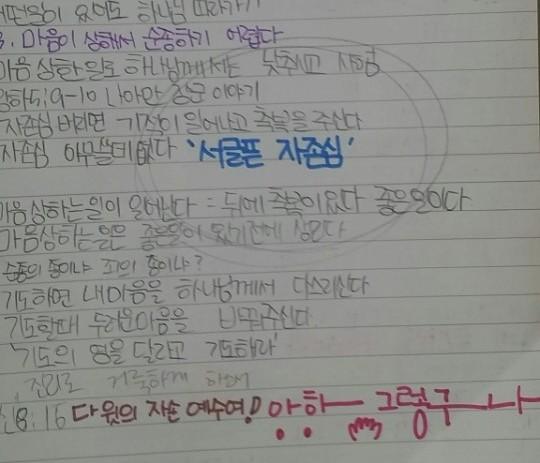 어떤일이 있어도 하나님 따라가기
3. 마음이 상해서 순종하기 어렵다
마음 상한 일로 하나님께서는 낮추시고 시험
왕하5:9-10 나아만 장군 이야기
자존심 버리면 기적이 일어나고 축복을 주신다
자존심 아무쓸데없다 '서글픈 자존심'
마음 상하는 일이 일어난다 = 뒤에 축복이 있다 좋은일이다
마음상하는일은 좋은일이 있기전에 생긴다
순종의 종이냐 죄의 종이냐?
기도하면 내마음을 하나님께서 다스리신다
기도할때 두려운마음을 바꿔주신다
'기도의 영을 달라고 기도하라'
진리로 거룩하게 하며
8:16 다윗의 자손 예수여! 아하 그렇구나